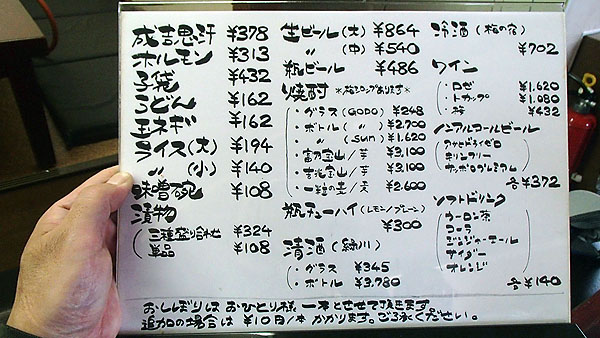 成吉思汗 ¥378
ホルモン ¥313
子袋 ¥432
うどん ¥162
玉ネギ ¥162
ライス(大) ¥194
〃 (小) ¥140
味噌碗 ¥108
漬物
三種盛り合わせ ¥324
単品 ¥108
生ビール(大) ¥864
〃 (中) ¥540
瓶ビール ¥486
焼酎 *梅シロップあります*
・グラス(GODO) ¥248
・ボトル( 〃 ) ¥2,700
・ 〃 (SUN) ¥1,620
・富乃宝山/芋 ¥3,100
・吉兆宝山/芋 ¥3,100
・一粒の麦/麦 ¥2,600
瓶チューハイ(レモン/プレーン)
¥300
清酒(緑川)
・グラス ¥345
・ボトル ¥3,780
冷酒(梅の宿)
¥702
ワイン
・ロゼ ¥1,620
・トカップ ¥1,080
・梅 ¥432
ノンアルコールビール
アサヒドライゼロ
キリンフリー
サッポロプレミアム
各¥372
ソフトドリンク
ウーロン茶
コーラ
ジンジャーエール
サイダー
オレンジ
各¥140
おしぼりはおひとり様一本とさせて頂きます
追加の場合は¥10円/本かかります。ご了承ください。